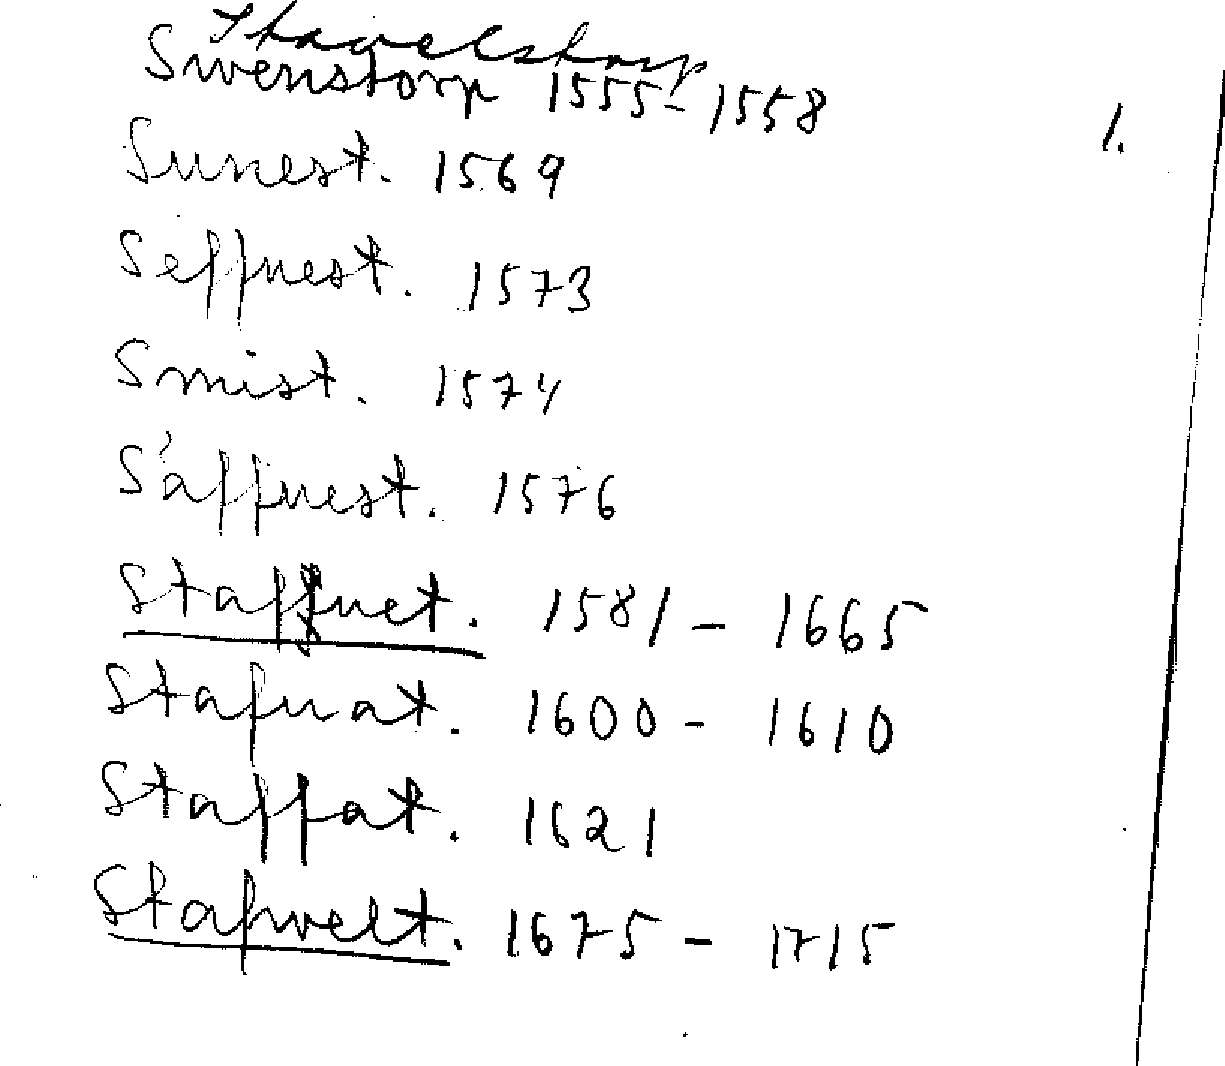 Stavelstorp
Swenstorp 1555-1558
1.
Sunest. 1569
Seffnest. 1573
Smist. 1574
Säffnest. 1576
Staffnet. 1581 - 1665
Stafnat. 1600 - 1610
Staffat. 1621
Stafwelt. 1675 - 1715